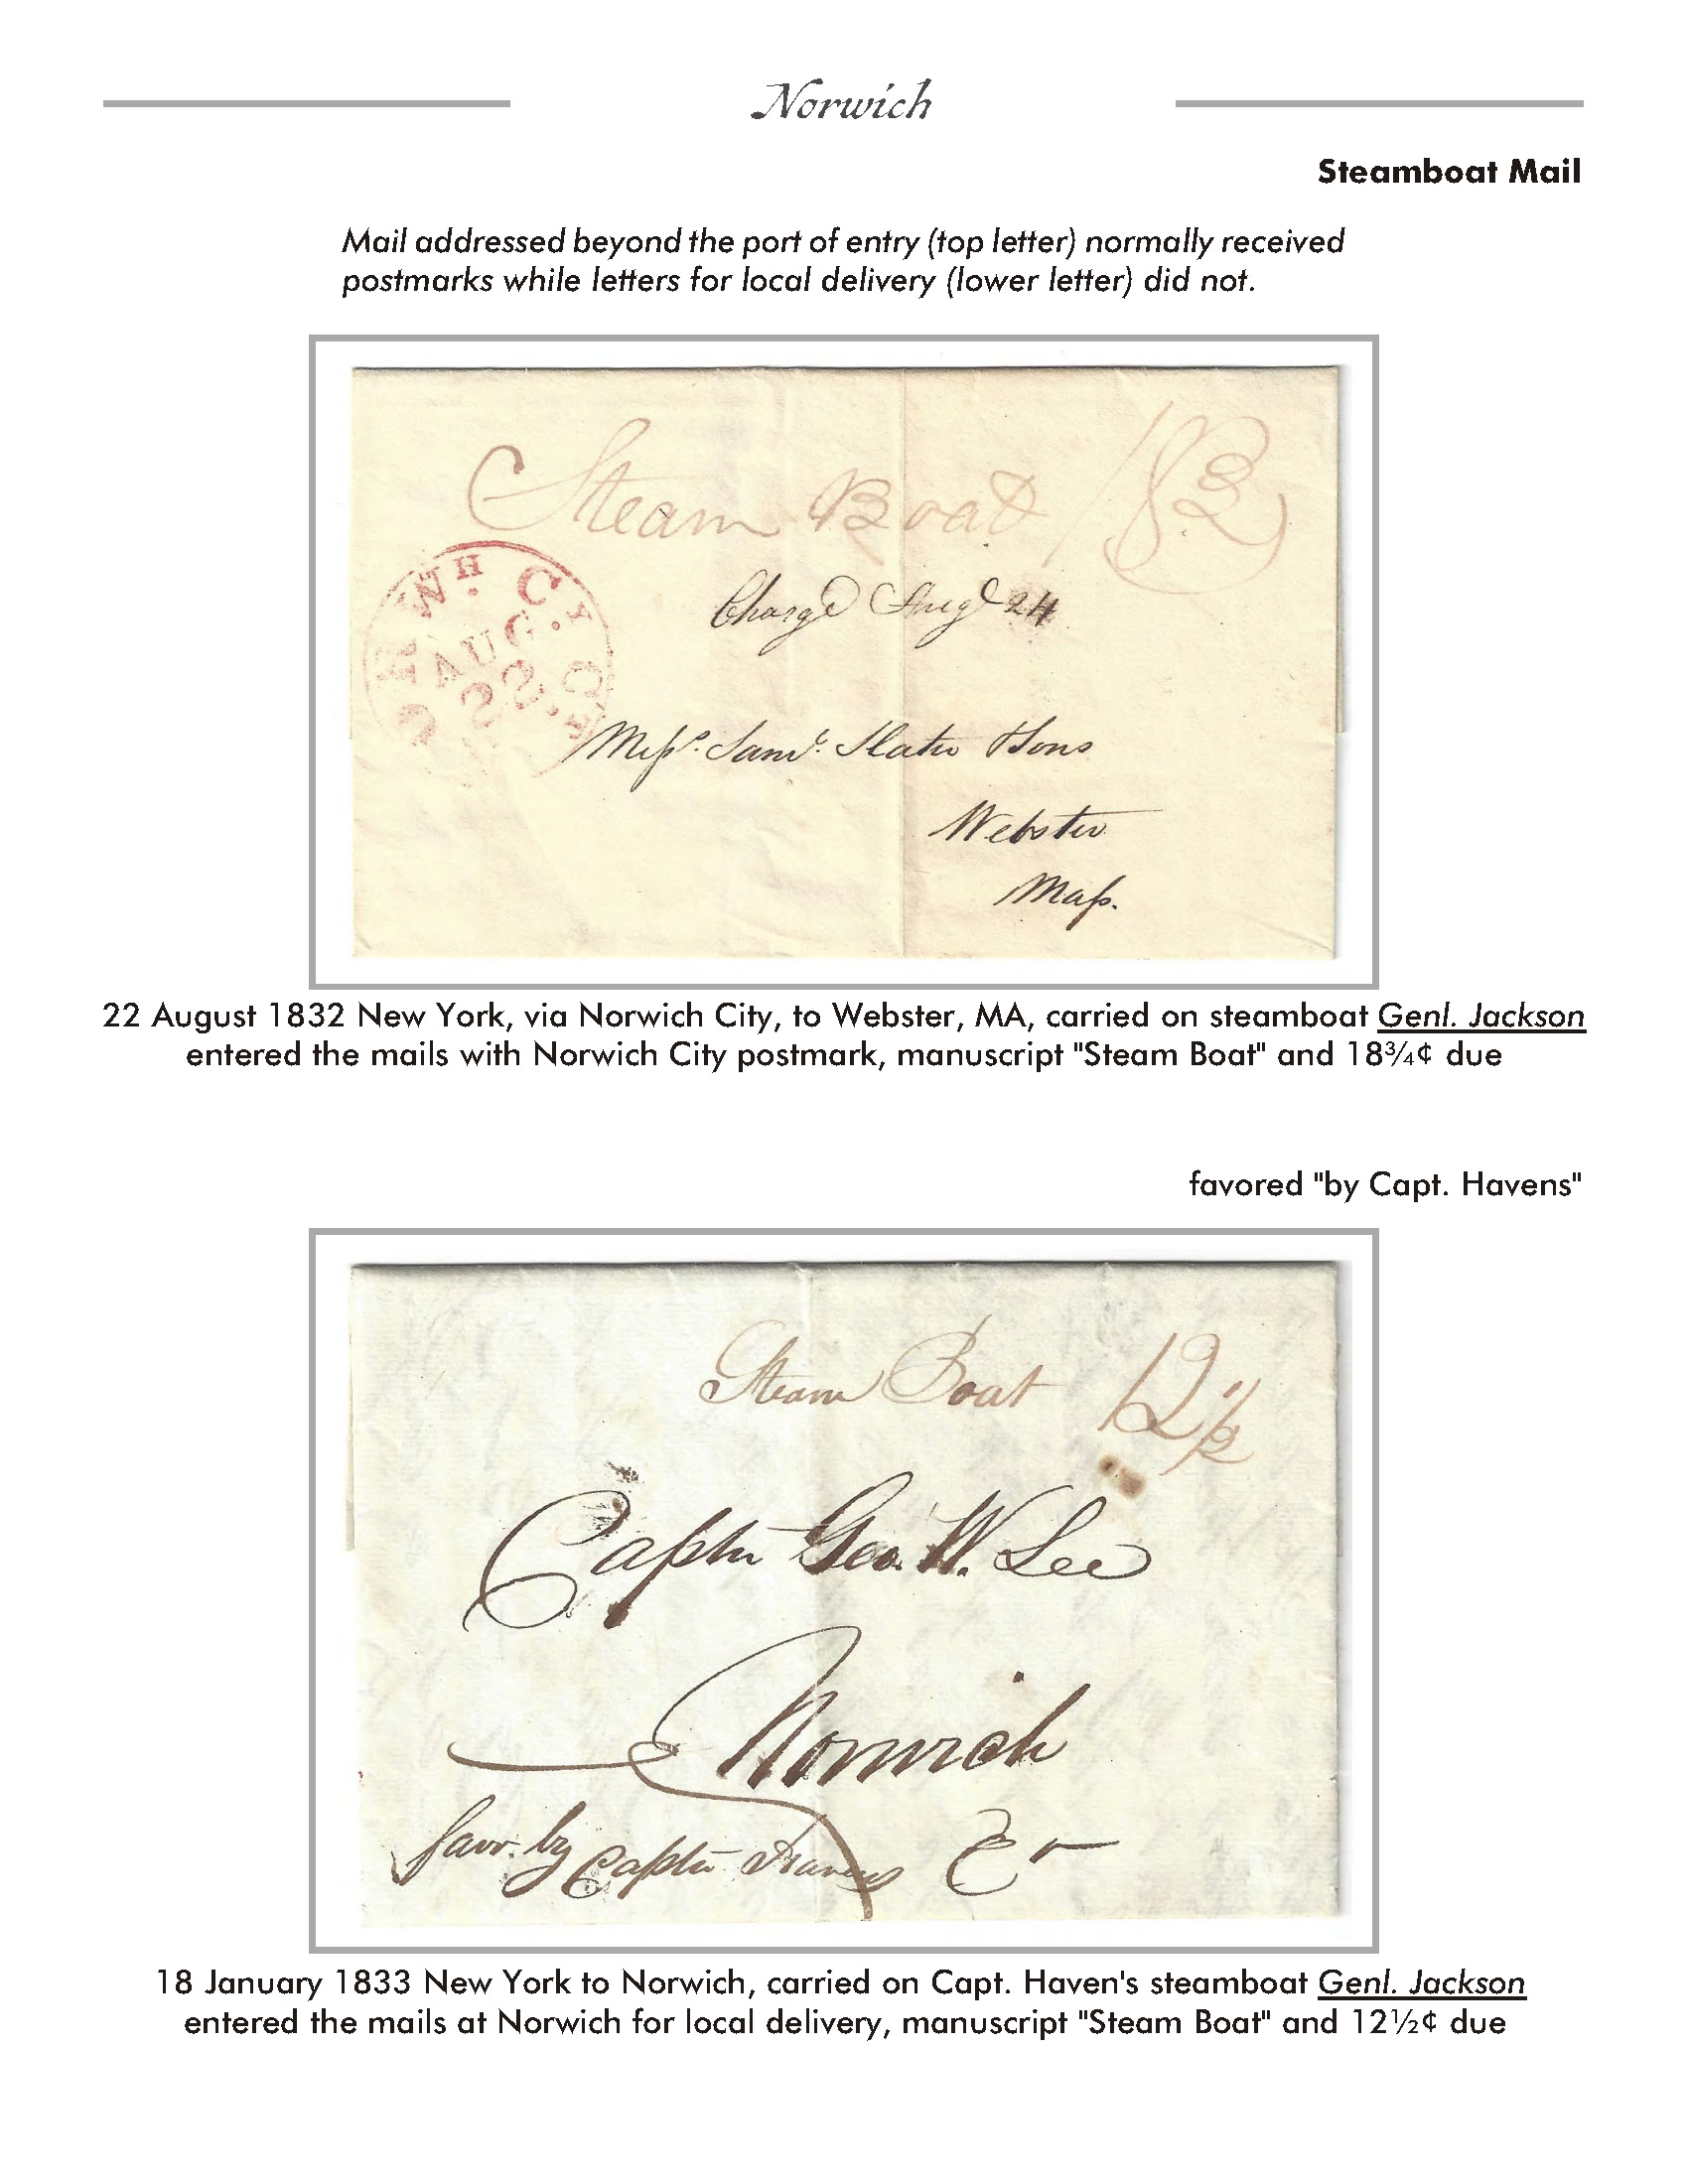 Norwich
Steamboat Mail
Mail addressed beyond the port of entry (top letter) normally received
postmarks while letters for local delivery (lower letter) did not.
Steam Boat 18¾
NORWH. CY. CT.
AUG. 22
Charge Augt 24
Messrs. Saml. Slater & Sons
Webster
Mass.
22 August 1832 New York, via Norwich City, to Webster, MA, carried on steamboat Genl. Jackson
entered the mails with Norwich City postmark, manuscript "Steam Boat" and 18¾¢ due
favored "by Capt. Havens"
Steam Boat 12½
Captn Geo. W. Lee
Norwich
favr. by Captn Havens
18 January 1833 New York to Norwich, carried on Capt. Haven's steamboat Genl. Jackson
entered the mails at Norwich for local delivery, manuscript "Steam Boat" and 12½¢ due